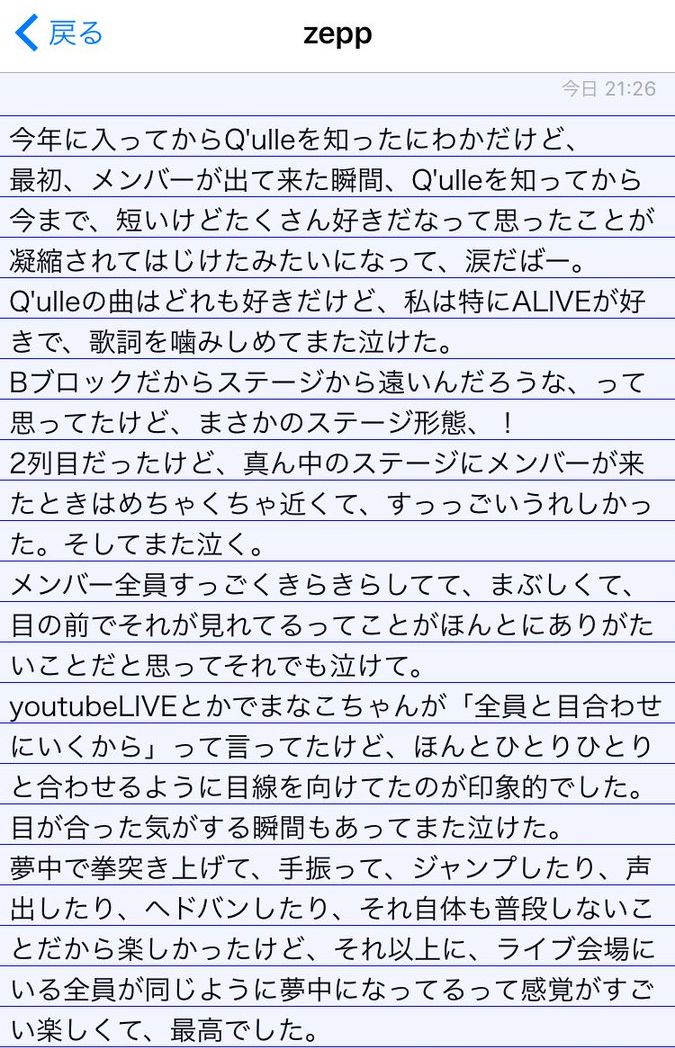 戻る
zepp
今日 21:26
今年に入ってからQ'ulleを知ったにわかだけど、
最初、メンバーが出て来た瞬間、Q'ulleを知ってから
今まで、短いけどたくさん好きだなって思ったことが
凝縮されてはじけたみたいになって、涙だばー。
Q'ulleの曲はどれも好きだけど、私は特にALIVEが好
きで、歌詞を噛みしめてまた泣けた。
Bブロックだからステージから遠いんだろうな、って
思ってたけど、まさかのステージ形態、！
2列目だったけど、真ん中のステージにメンバーが来
たときはめちゃくちゃ近くて、すっっごいうれしかっ
た。そしてまた泣く。
メンバー全員すっごくきらきらしてて、まぶしくて、
目の前でそれが見れてるってことがほんとにありがた
いことだと思ってそれでも泣けて。
youtubeLIVEとかでまなこちゃんが「全員と目合わせ
にいくから」って言ってたけど、ほんとひとりひとり
と合わせるように目線を向けてたのが印象的でした。
目が合った気がする瞬間もあってまた泣けた。
夢中で拳突き上げて、手振って、ジャンプしたり、声
出したり、ヘドバンしたり、それ自体も普段しないこ
とだから楽しかったけど、それ以上に、ライブ会場に
いる全員が同じように夢中になってるって感覚がすご
い楽しくて、最高でした。